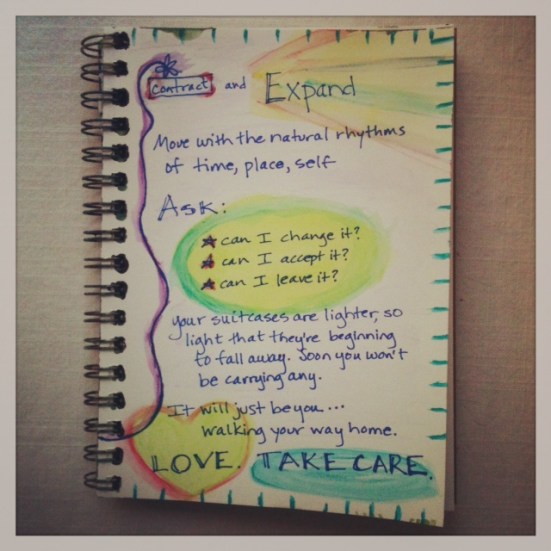 Contract and Expand
Move with the natural rhythms
of time, place, self
Ask:
can I change it?
can I accept it?
can I leave it?
your suitcases are lighter, so
light that they're beginning
to fall away. Soon you won't
be carrying any.
It will just be you...
walking your way home.
LOVE. TAKE CARE.